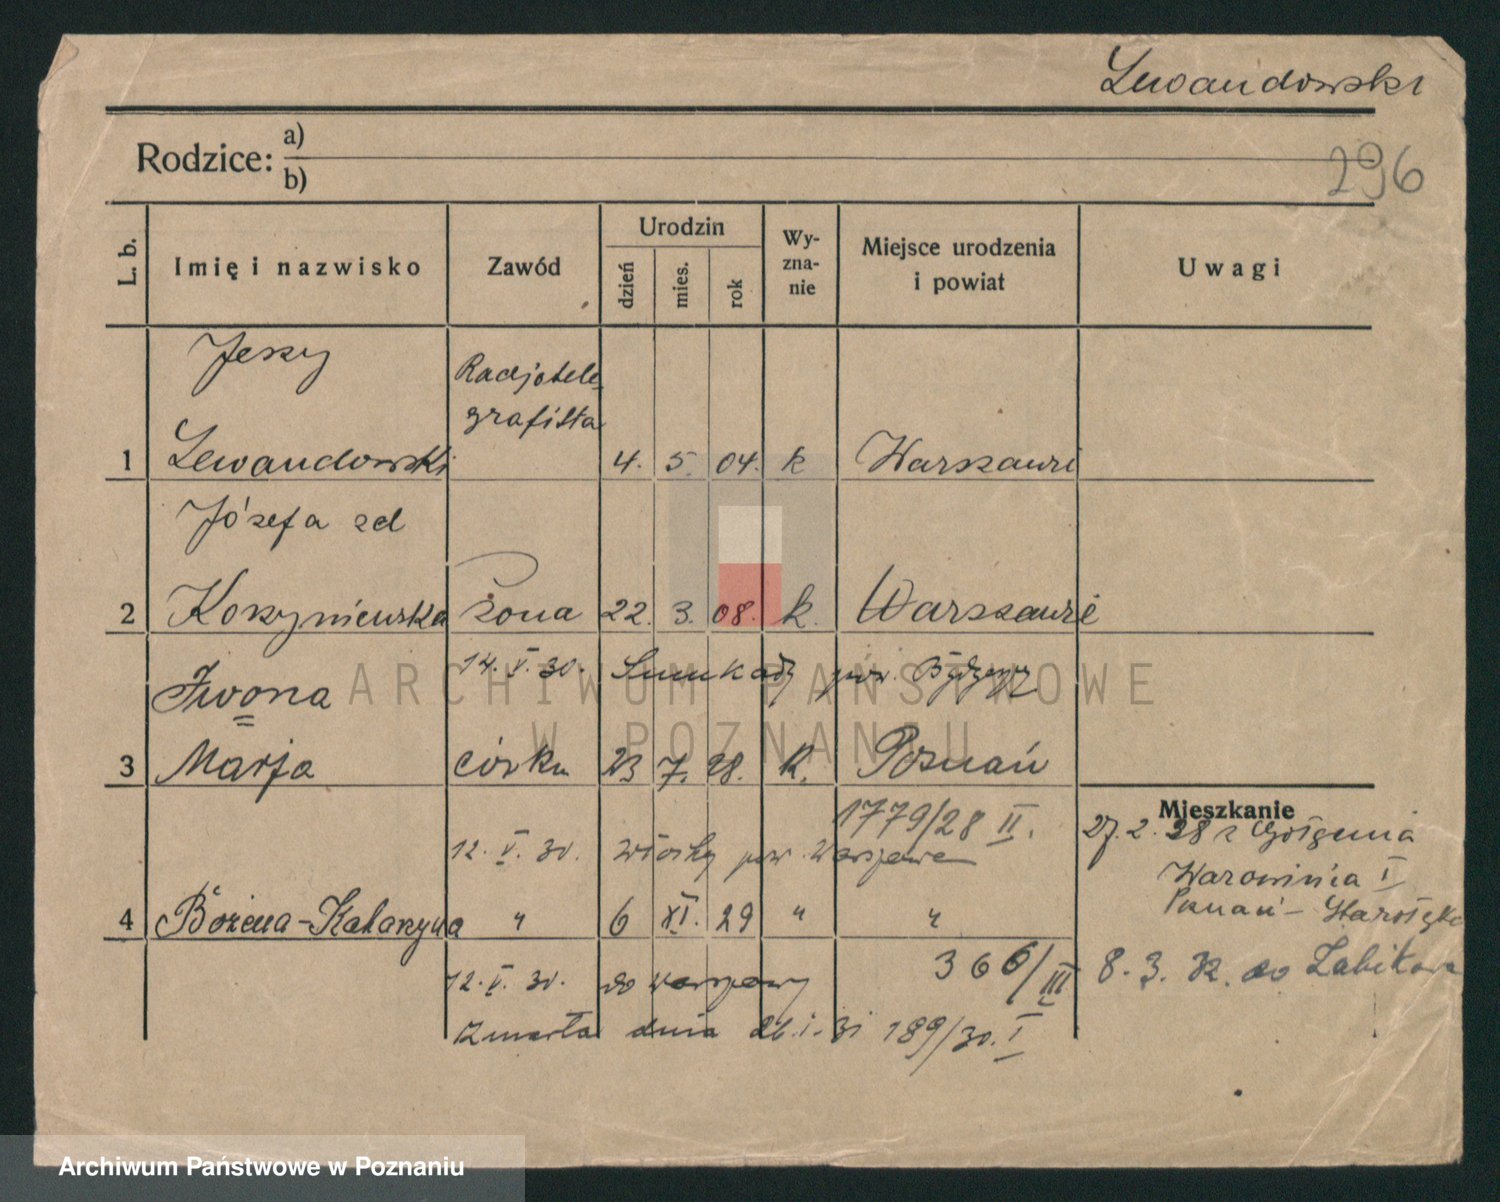 Lewandowski
Rodzice: a)
b)
296
L. b.
Imię i nazwisko
Zawód
Urodzin
dzień
mies.
rok
Wy-
zna-
nie
Miejsce urodzenia
i powiat
Uwagi
Jerzy
Radjotele-
grafista
1 Lewandowski 4. 5. 04. k Warszawie
Józefa zd
2 Korzyniewska żona 22. 3. 08. k. Warszawie
14. V. 30. pow. Bydgoszcz
Iwona
3 Marja córka 23 7. 28. k. Poznań
1779/28 II.
Mieszkanie
27. 2. 28 z
12. V. 30. pow. Warszawa
I
Poznań - Starołęka
4 Bożena-Katarzyna " 6 XI. 29 " "
366/III
8. 3. 32. do Żabikowa
12. V. 30. do Warszawy
Zmarła dnia 26.1.31 189/30. I
ARCHIWUM PAŃSTWOWE
W POZNANIU
Archiwum Państwowe w Poznaniu